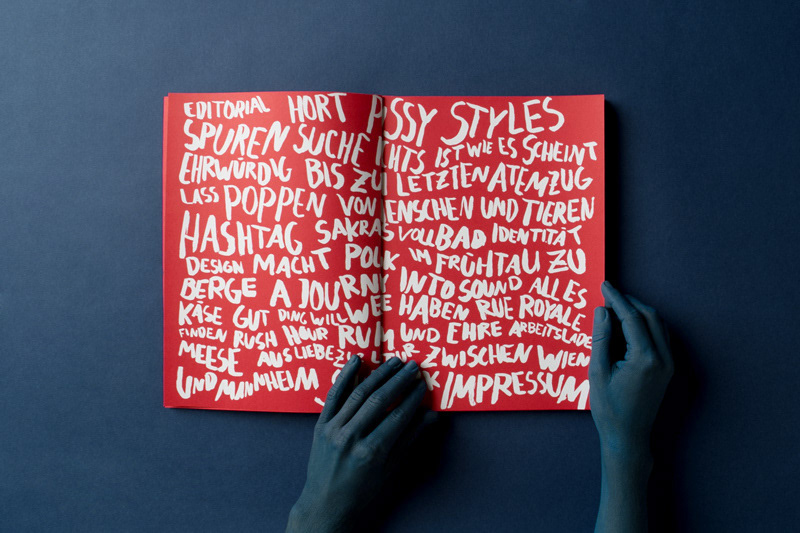 EDITORIAL HORT STYLES
SPUREN SUCHE IST WIE ES SCHEINT
EHRWÜRDIG BIS ZU LETZTEN ATEMZUG
LASS POPPEN VON ENSCHEN UND TIEREN
HASHTAG SAKRAS VOLLBAD IDENTITÄT
DESIGN MACHT IM FRÜHTAU ZU
BERGE A JOURNY INTO SOUND ALLES
KÄSE GUT DING WILL HABEN RUE ROYALE
FINDEN RUSH HOUR RUM UND EHRE ARBEITSLADE
MEESE AUS LIEBE ZU ZWISCHEN WIEN
UND MANNHEIM IMPRESSUM